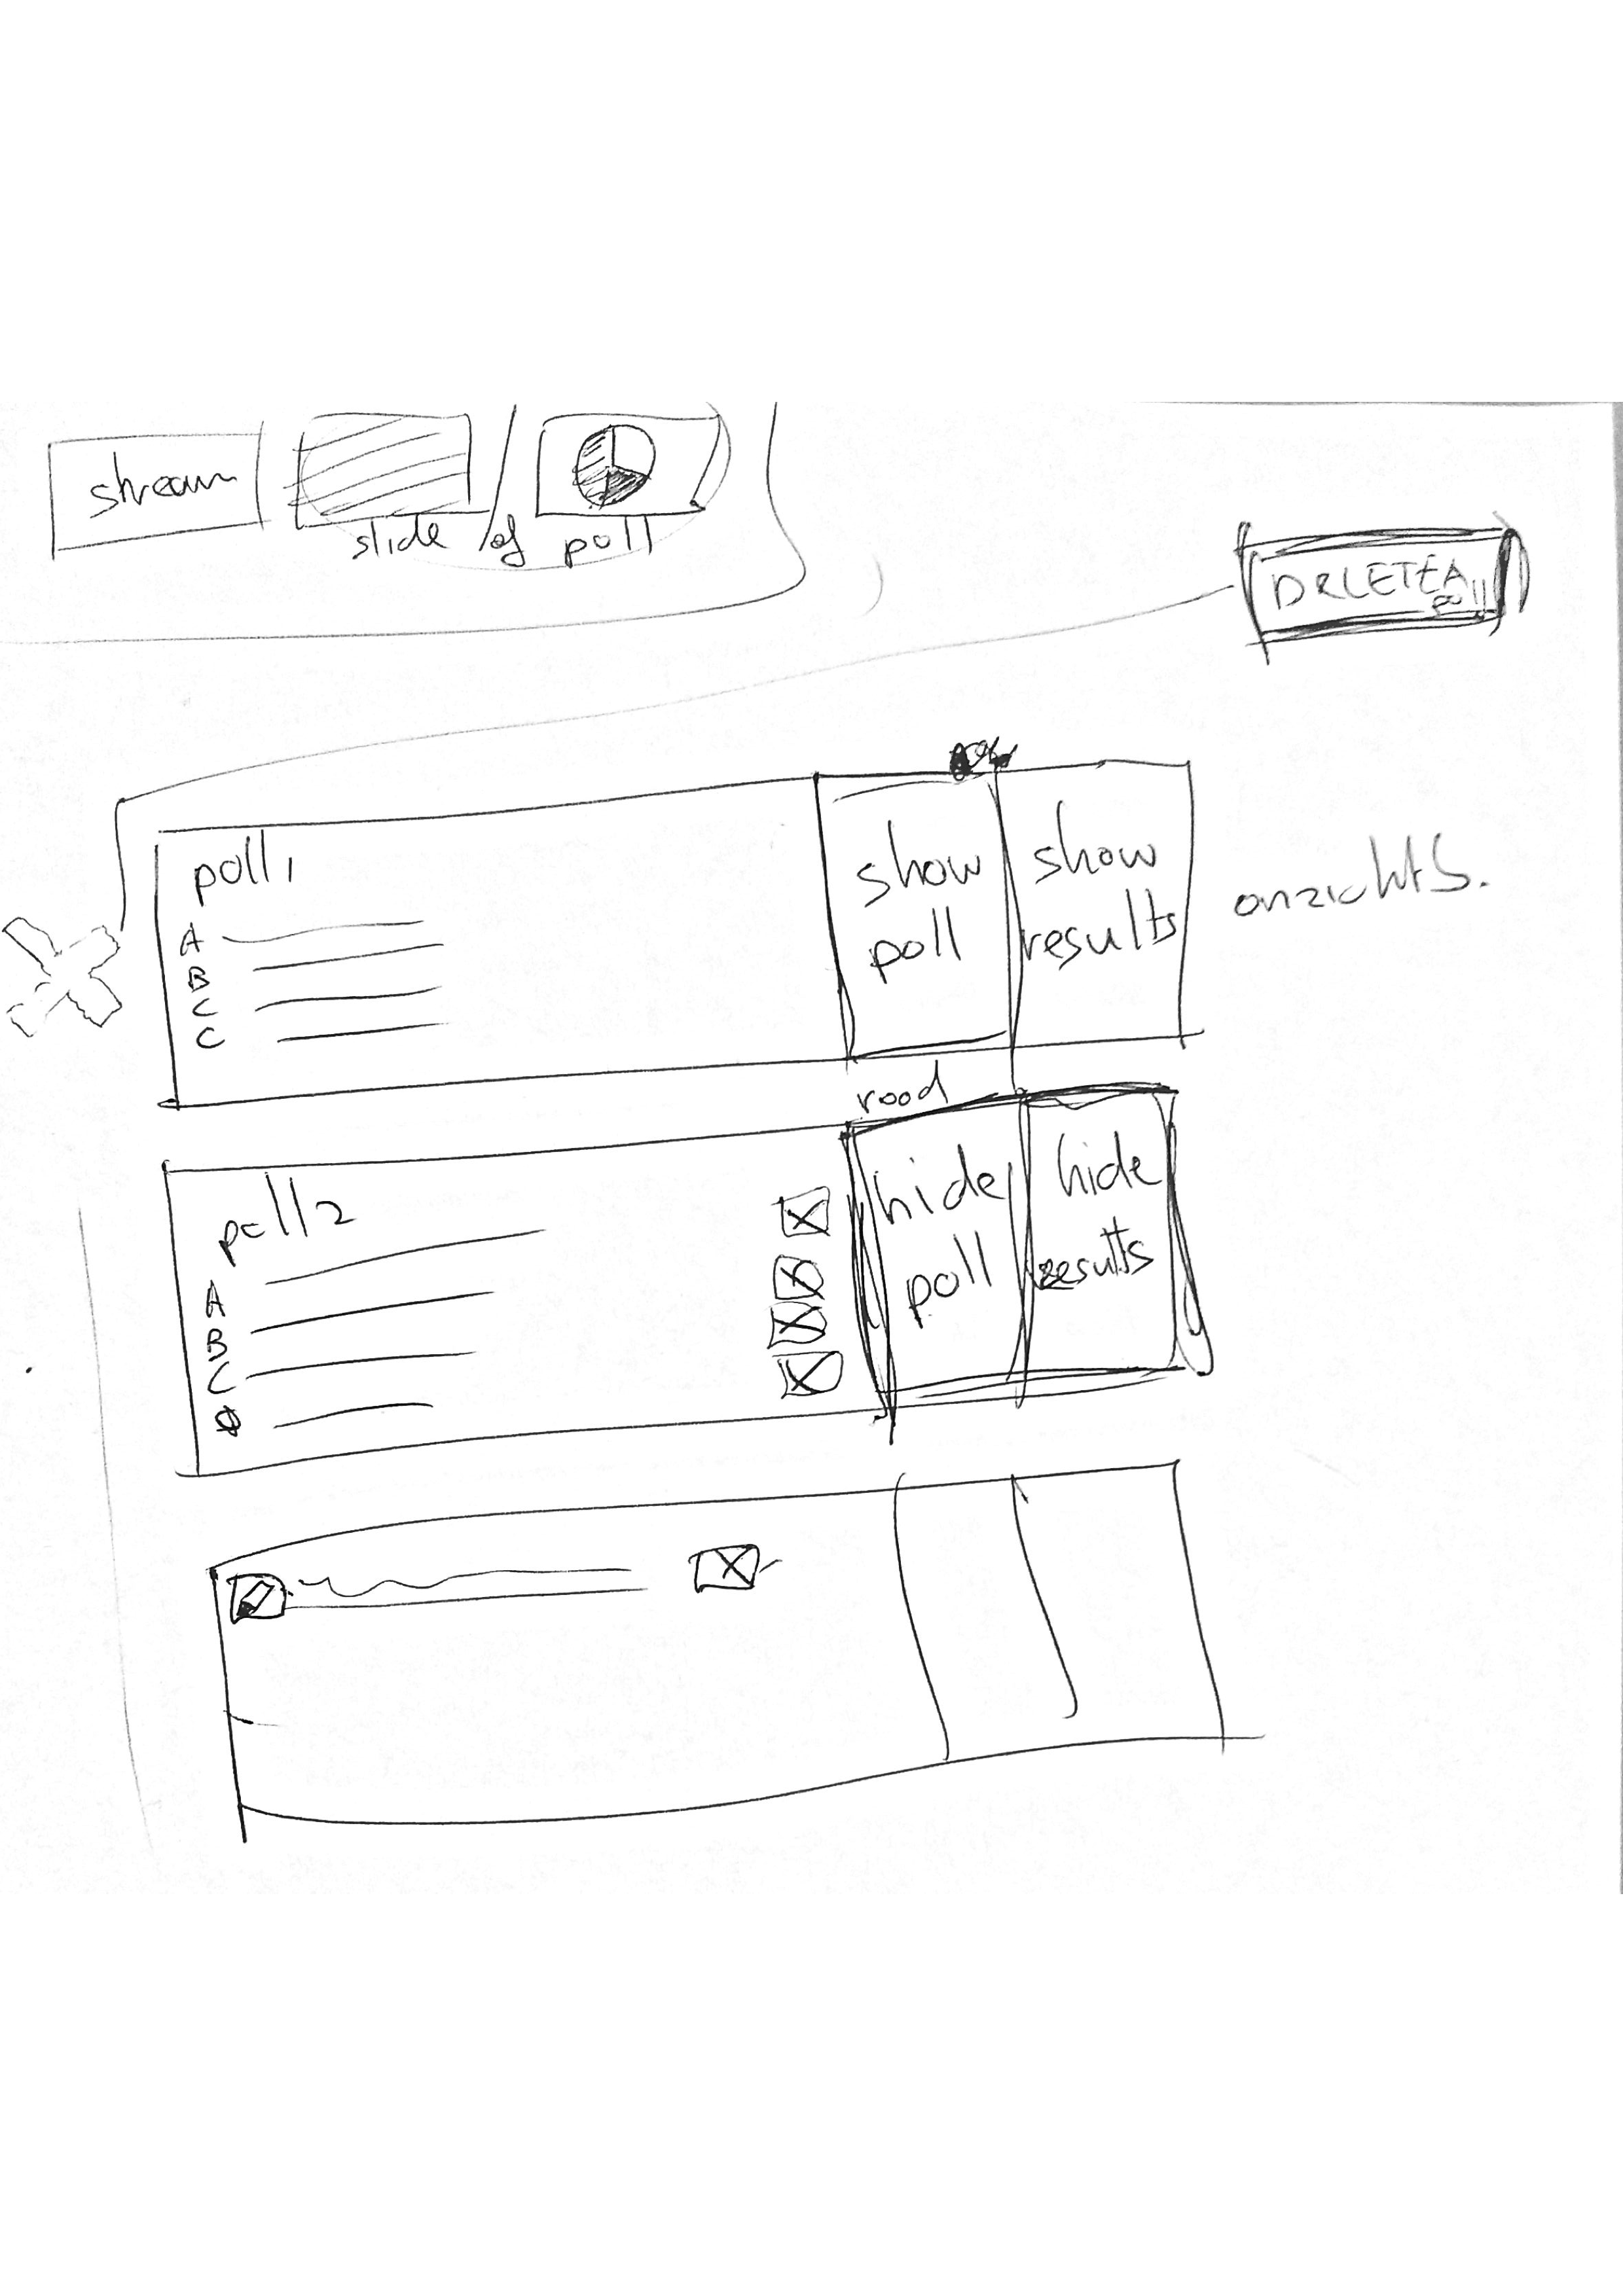 stream
slide of poll
DELETE A
poll
poll 1
A
B
C
C
show
poll
show
results
onzichtb.
rood
poll 2
A
B
C
hide
poll
hide
results